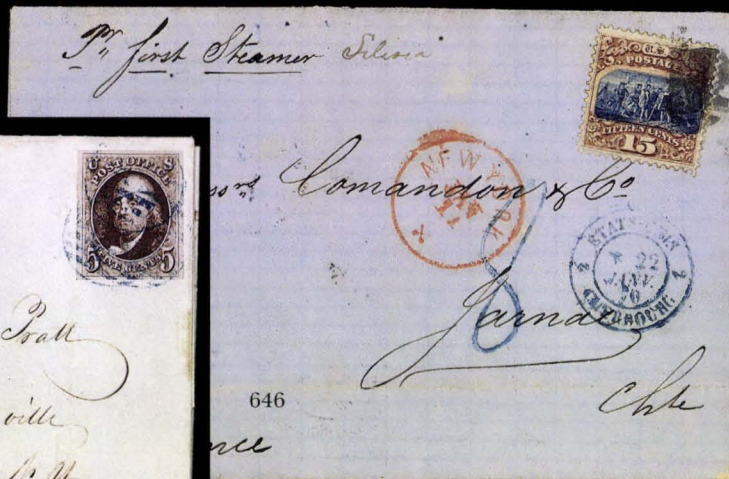 Pr. first Steamer Silesia
U.S. POSTAGE
FIFTEEN CENTS
15
NEW YORK
Comandon & Co
8
ETATS-UNIS
2 22 2
JANV.
70
CHERBOURG
Jarnac
Chte
646
nce
U S
POST OFFICE
5 FIVE CENTS 5
Pratt
ville
N.Y.